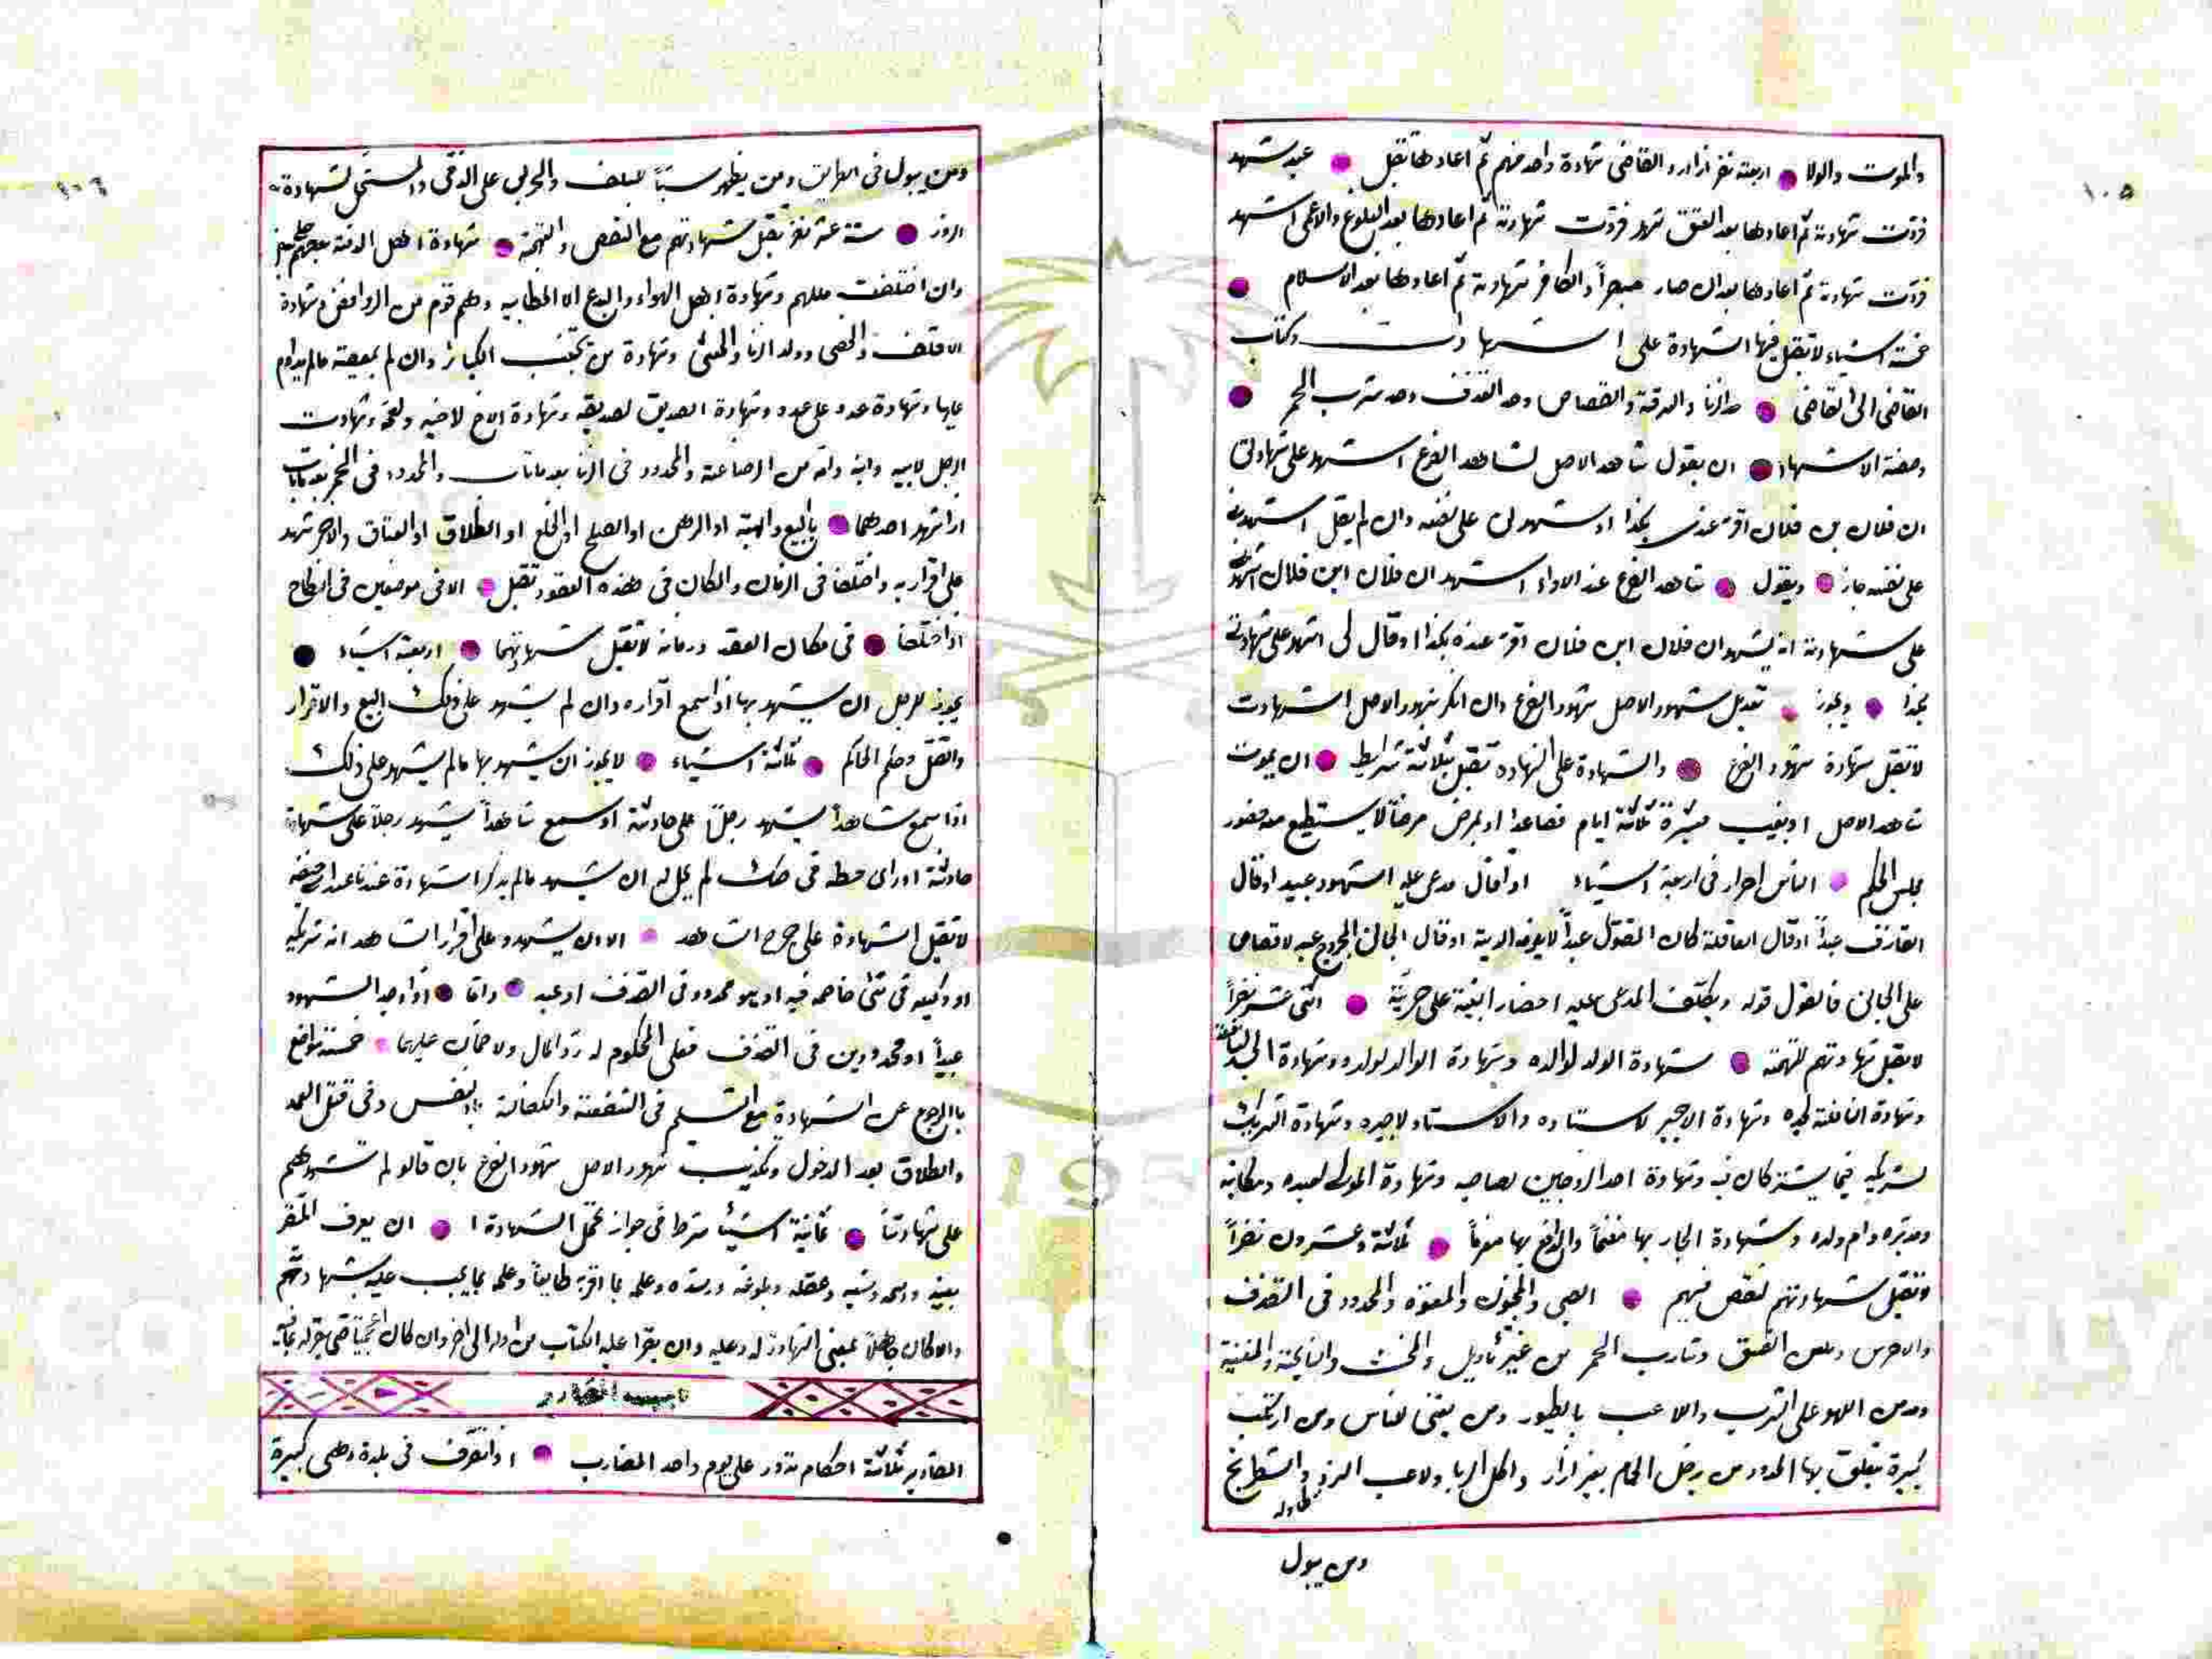 ١٠٥
والموت والولا اربعة نفر اذا رد القاضى شهادة واحد منهم ثم اعادها تقبل عبد شهد
فردت شهادته ثم اعادها بعد العتق شهد فردت شهادته ثم اعادها بعد البلوغ والاعمى اشهد
فردت شهادته ثم اعادها بعد ان صار مبصراً والكافر شهادته ثم اعادها بعد الاسلام
خمسة اشياء لا تقبل فيها الشهادة على الشهادت وكتاب
القاضى الى القاضى حد الزنا والسرقة والقصاص وحد القذف وحد شرب الخمر
وصفة الاشهاد ان يقول شاهد الاصل لشاهد الفرع اشهد على شهادتى
ان فلان بن فلان اقر عندى بكذا او شهد لى على نفسه وان لم يقل اشهدنى
على نفسه جاز ويقول شاهد الفرع عند الاداء اشهد ان فلان ابن فلان اشهدنى
على شهادته انه يشهد ان فلان ابن فلان اقر عنده بكذا وقال لى اشهد على شهادتى
بكذا ويجوز تعديل شهود الاصل شهود الفرع وان انكر شهود الاصل الشهادت
لا تقبل شهادة شهود الفرع والشهادة على الشهادة تقبل بثلاثة شرايط ان يموت
شاهد الاصل او يغيب مسيرة ثلاثة ايام فصاعدا او يمرض مرضاً لا يستطيع معه حضور
مجلس الحكم الناس احرار فى اربعة اشياء اذا قال مدعى عليه الشهود عبيد او قال
القاذف عبداً او قال العاقلة كان المقتول عبداً لا يلزمه الدية او قال الجانى المجروح عبد لا قصاص
على الجانى فالقول قوله ويكلف المدعى عليه احضار البينة على حريته اثنى عشر نفراً
لا تقبل شهادتهم للتهمة شهادة الولد لوالده وشهادة الوالد لولده وشهادة الجد لنافلته
وشهادة النافلة لجده وشهادة الاجير لاستاده والاستاد لاجيره وشهادة الشريك
لشريكه فيما يشتركان فيه وشهادة احد الزوجين لصاحبه وشهادة المولى لعبده ومكاتبه
ومدبره وام ولده وشهادة الجار بها مغنماً والدافع بها مغرماً ثلاثة وعشرون نفراً
لا تقبل شهادتهم لنقص فيهم الصبى والمجنون والمعتوه والمحدود فى القذف
والاخرس ومعلن الفسق وشارب الخمر من غير تأويل والمخنث والنايحة والمغنية
ومدمن اللهو على الشرب واللاعب بالطيور ومن يغنى للناس ومن ارتكب
كبيرة تعلق بها الحدود من يدخل الحمام بغير ازار واكل الربا ولاعب النرد والشطرنج
طاوله
ومن يبول
١٠٦
ومن يبول فى الطريق ومن يظهر سباً للسلف والحربى على الذمى والمستحل لشهادة
الزور ستة عشر نفر تقبل شهادتهم مع النقص والتهمة شهادة اهل الذمة بعضهم على بعض
وان اختلفت مللهم وشهادة اهل الهواء والبدع الا الخطابيه وهم قوم من الروافض وشهادة
الاقلف والخصى وولد الزنا والخنثى وشهادة من تجنب الكبائر وان لم بمعصية مالم يداوم
عليها وشهادة عدو على عدو وشهادة الصديق لصديقه وشهادة الاخ لاخيه ولعمه وشهادت
الرجل لابيه وابنه وامه من الرضاعة والمحدود فى الزنا بعد ماتاب والمحدود فى الخمر بعد ماتاب
اذا شهد احدهما بالبيع والهبة او الرهن او الصلح او الخلع او الطلاق او العتاق والاخر شهد
على اقراره واختلفا فى الزمان والمكان فى هذه العقود تقبل الا فى موضعين فى النكاح
اذا اختلفا فى مكان العقد وزمانه لا تقبل شهادتهما اربعة اشياء
يجوز للرجل ان يشهد بها اذا سمع اقراره وان لم يشهد على ذلك البيع والاقرار
والقتل وحكم الحاكم ثلاثة اشياء لا يجوز ان يشهد بها مالم يشهد على ذلك
اذا سمع شاهداً يشهد رجلاً على حادثة او سمع شاهداً يشهد رجلاً على شهادة
حادثة او راى خطه فى صك لم يحل له ان يشهد مالم يذكر الشهادة عند ابى حنيفه
لا تقبل الشهادة على جرح الشاهد الا ان يشهدو على اقرار الشاهد انه شريكه
او وكيله فى شئ خاصمه فيه او هو محدود فى القذف او عبد واذا وجد الشهود
عبيداً او محدودين فى القذف فعلى المحكوم له رد المال ولا ضمان عليهما خمسة مواضع
بالرجوع عن الشهادة مع التسليم فى الشفعة والكفالة بالنفس وفى قتل العمد
والطلاق بعد الدخول وتكذيب شهود الاصل شهود الفرع بان قالو لم نشهدهم
على شهادتنا ثمانية اشياء شرط فى جواز تحمل الشهادة ان يعرف المقر
بعينه واسمه ونسبه وعقله وبلوغه ورشده وعلمه بما اقر به طايعاً وعلمه بما يجب عليه بشهادتهم
والا كان جاهلاً بمعنى الشهادة له وعليه وان يقرا عليه الكتاب من اوله الى اخره وان كان
المقادير ثلاثة احكام تدور على يوم واحد المضارب اذا تصرف فى بلدة وهى كبيرة